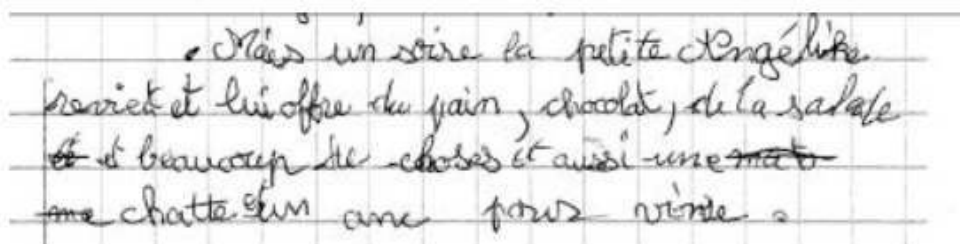 Mais un soire la petite Angélike
reviet et lui offre du pain, chocolat, de la salade
et beaucoup de choses et aussi une
chatte et un ane pour vivre.